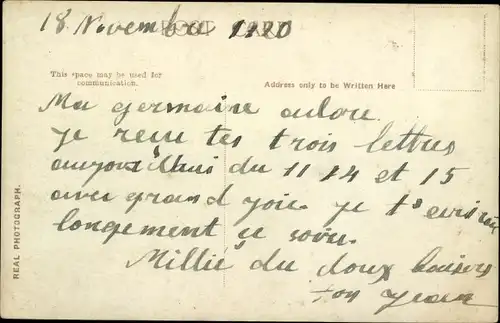 18 Novembre 1920
POST CARD
This space may be used for
communication.
Address only to be Written Here
Ma germaine adore
je recu tes trois lettres
aujourd'huis du 11 14 et 15
avec grand joie. je t'ecrirai
longement ce soir.
Millie du doux baisers
ton
REAL PHOTOGRAPH.